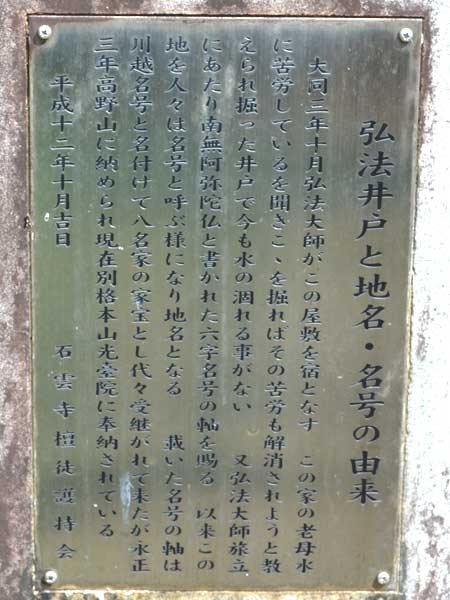 弘法井戸と地名・名号の由来
大同三年十月弘法大師がこの屋敷を宿となす　この家の老母水
に苦労しているを聞きこゝを掘ればその苦労も解消されようと教
えられ掘った井戸で今も水の涸れる事がない　又弘法大師旅立
にあたり南無阿弥陀仏と書かれた六字名号の軸を賜る　以来この
地を人々は名号と呼ぶ様になり地名となる　戴いた名号の軸は
川越名号と名付けて八名家の家宝とし代々受継がれて来たが永正
三年高野山に納められ現在別格本山光臺院に奉納されている
平成十二年十月吉日　石雲寺檀徒護持会